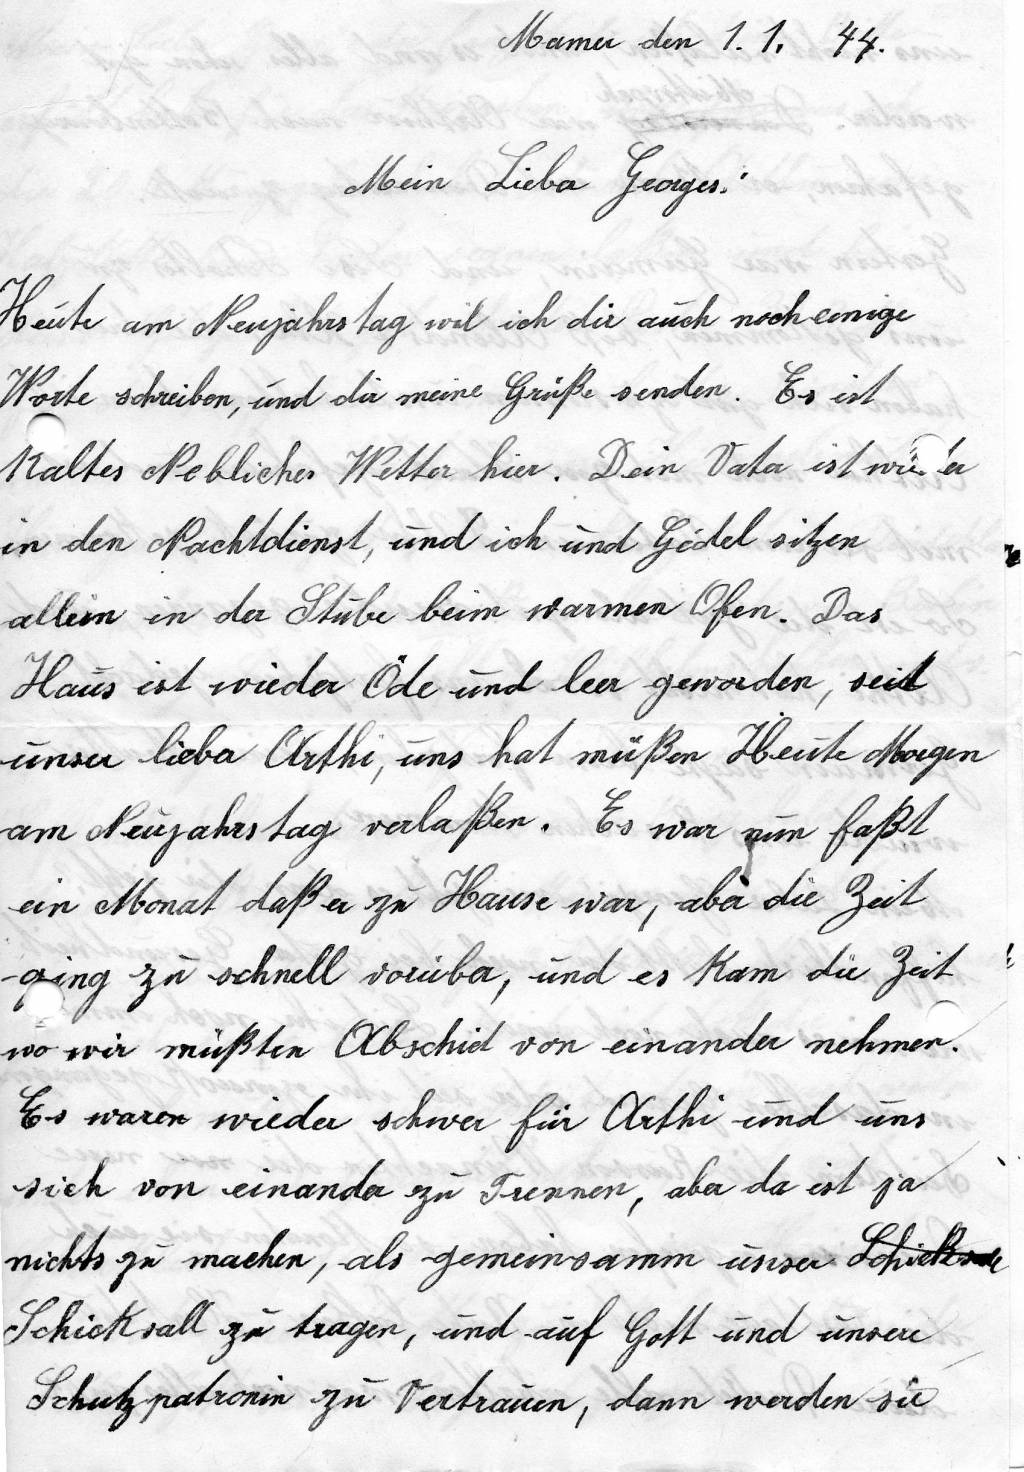 Mamer den 1. 1. 44.
Mein Lieber Georges!
Heute am Neujahrstag wil ich dir auch noch einige
Worte schreiben, und dir meine Grüße senden. Es ist
Kaltes Nebliches Wetter hier. Dein Vater ist wieder
in den Nachtdienst, und ich und Gödel sitzen
allein in der Stube beim warmen Ofen. Das
Haus ist wieder Öde und leer geworden, seit
unser lieber Arthi, uns hat müßen Heute Morgen
am Neujahrstag verlaßen. Es war nun faßt
ein Monat daß er zu Hause war, aber die Zeit
ging zu schnell vorüber, und es Kam die Zeit
wo wir müßten Abschid von einander nehmen.
Es waren wieder schwer für Arthi und uns
sich von einander zu Trennen, aber da ist ja
nichts zu machen, als gemeinsamm unser Schicksal
Schicksall zu tragen, und auf Gott und unsere
Schutzpatronin zu Vertrauen, dann werden sie